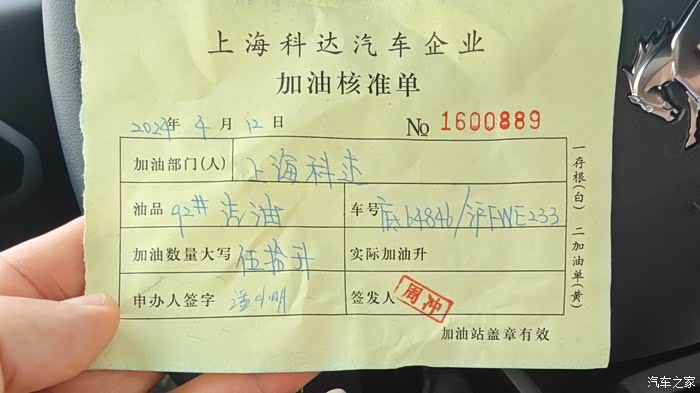 上海科达汽车企业
加油核准单
2024年 4月 12日 № 1600889
加油部门(人) 上海科达
油品 92# 汽油 车号 底64846/沪FWE233
加油数量大写 伍拾升 实际加油升
申办人签字 潘小明 签发人 周冲
加油站盖章有效
一存根(白) 二加油单(黄)
汽车之家